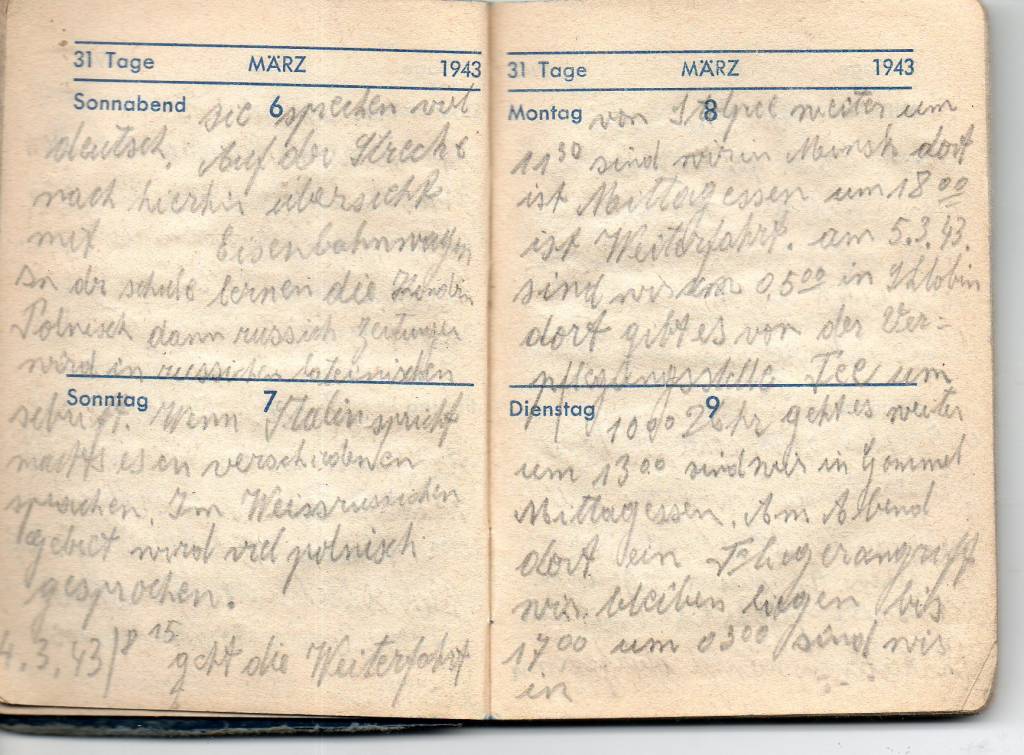 31 Tage MÄRZ 1943
Sonnabend 6 sie sprechen viel
deutsch. Auf der Strecke
nach hierhin übersicht
mit Eisenbahnwagen
In der schule lernen die
Polnisch dann russich Zeitungen
wird in russichen lateinischen
Sonntag 7
schrift. Wenn Stalin spricht
machts es en verschiedenen
sprachen. Im Weissrussichen
gebiet wird viel polnisch
gesprochen.
4.3.43) 8 15 geht die Weiterfahrt
31 Tage MÄRZ 1943
Montag 8 von weiter um
11 30 sind wir in Minsk dort
ist Mittagessen um 18 00
ist Weiterfahrt. am 5.3.43.
sind wir um 0.5 00 in Shlobin
dort gibt es von der Ver=
pflegungsstelle Tee um
Dienstag 9
10 00 Uhr geht es weiter
um 13 00 sind wir in Gommel
Mittagessen. Am Abend
dort ein Fliegerangriff
wir bleiben liegen bis
17 00 um 03 00 sind wir
in